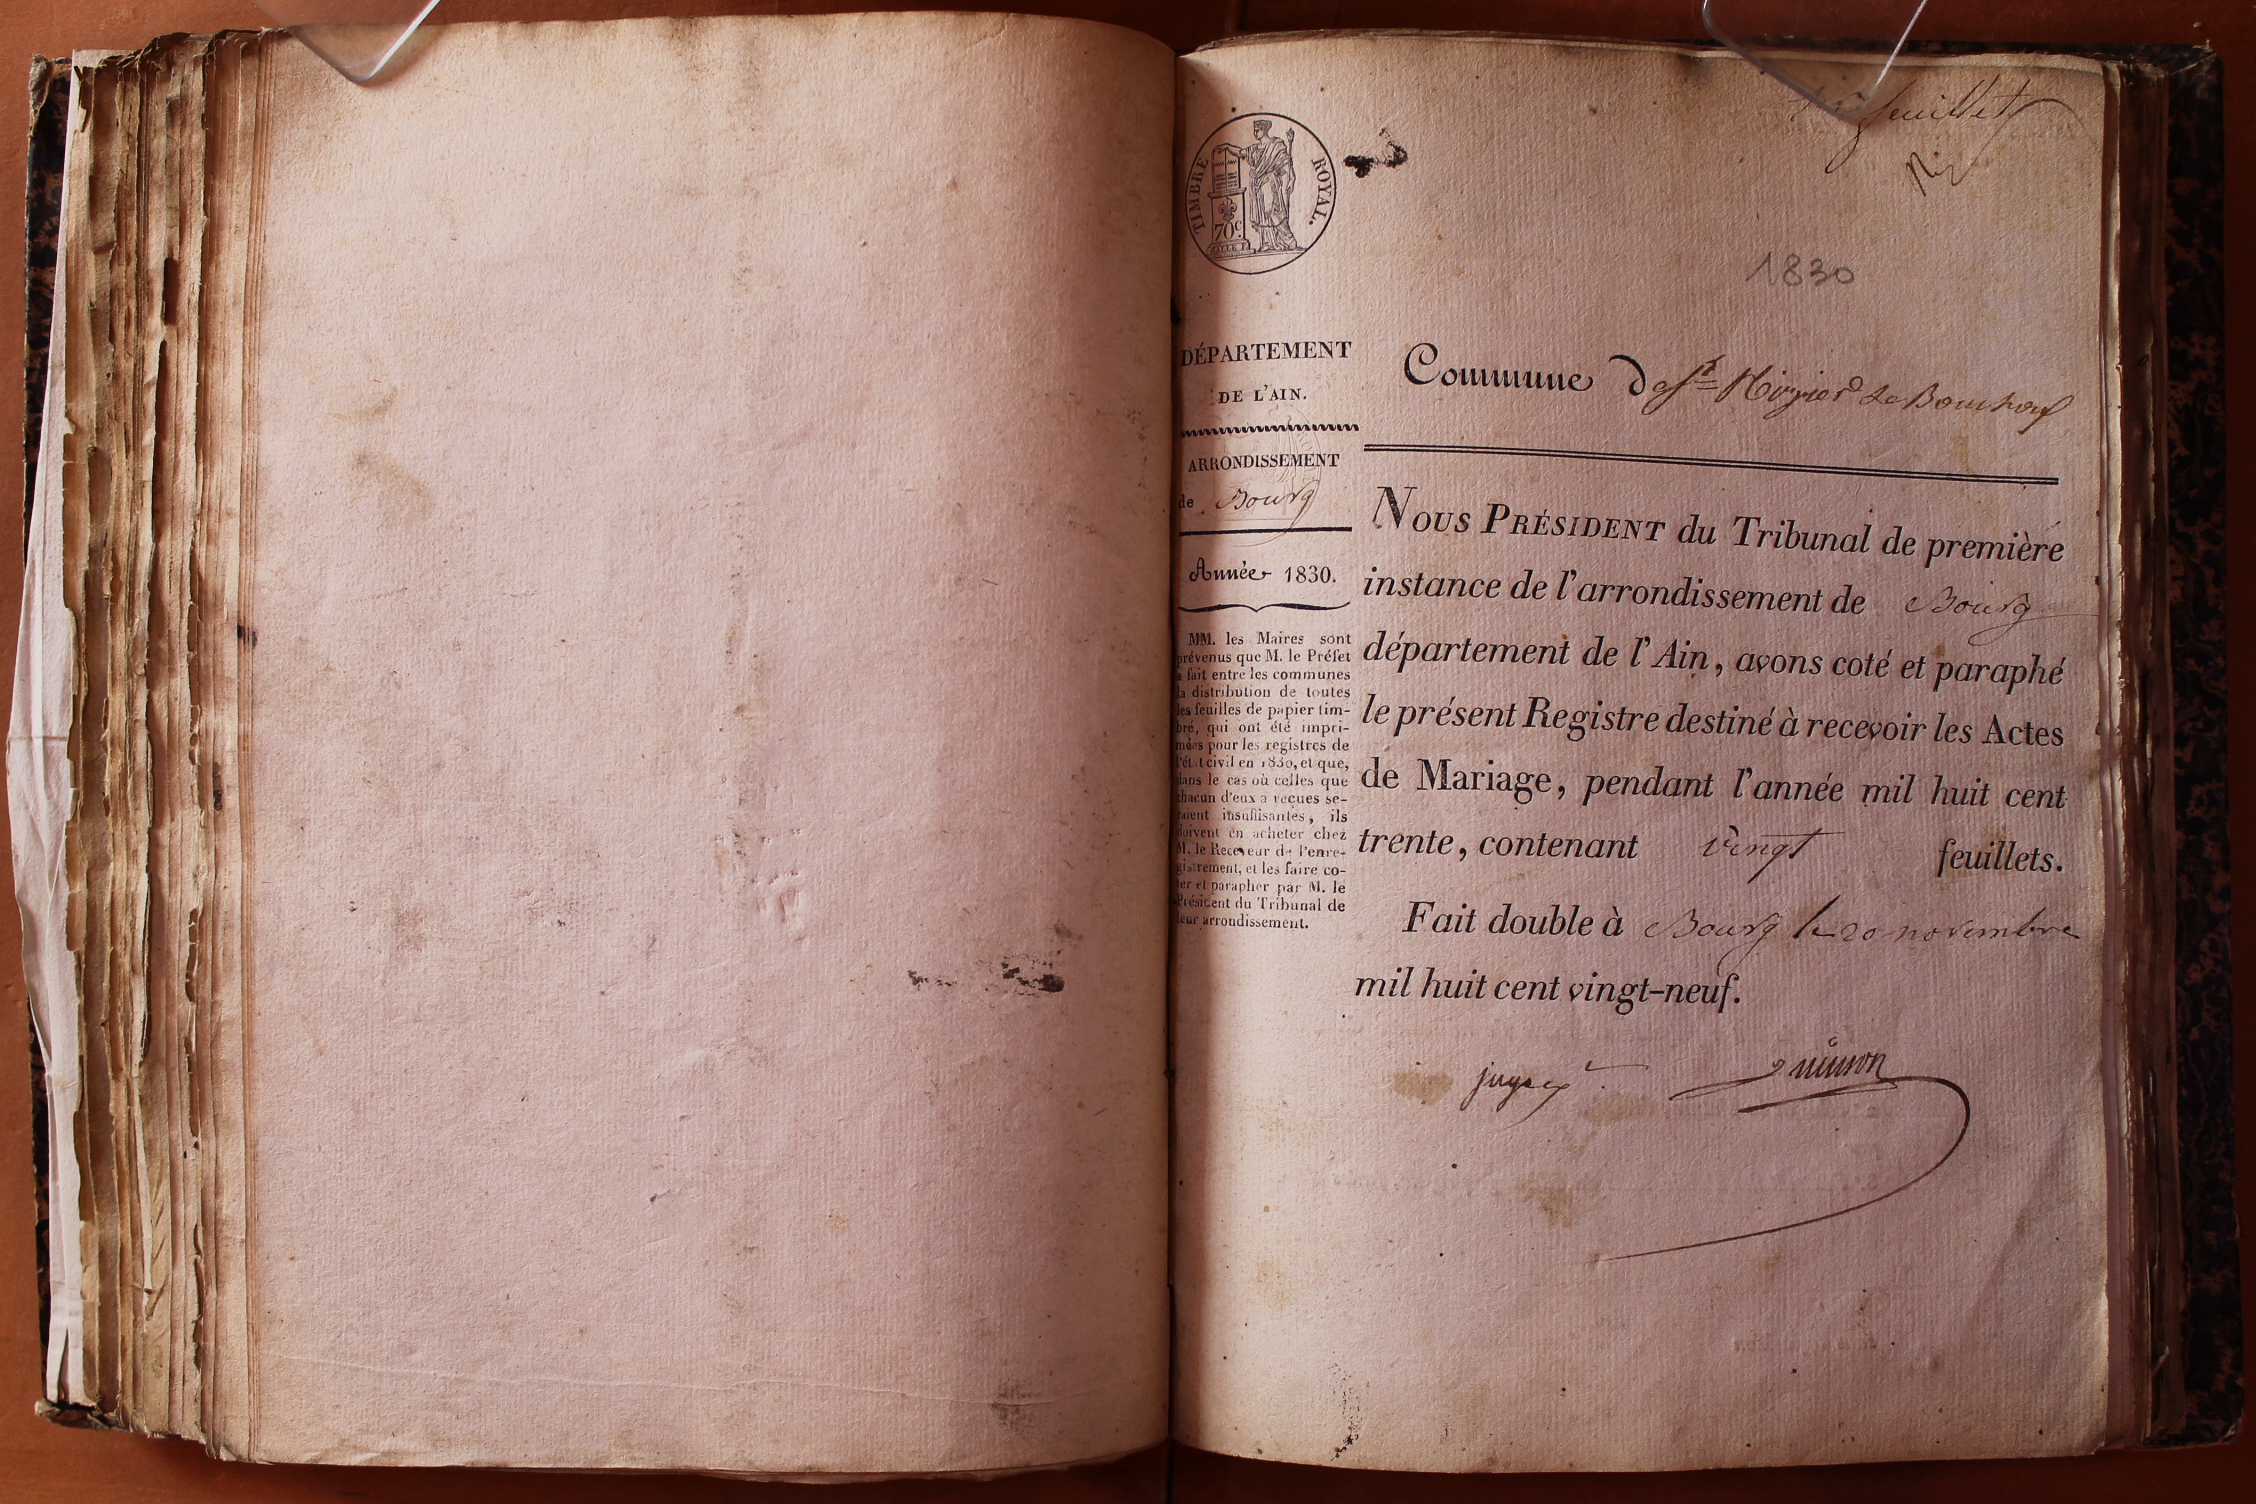 feuillet
TIMBRE ROYAL.
70c.
1830
DÉPARTEMENT
DE L'AIN.
ARRONDISSEMENT
de Bourg
Année 1830.
MM. les Maires sont
prévenus que M. le Préfet
a fait entre les communes
la distribution de toutes
les feuilles de papier tim-
bré, qui ont été impri-
mées pour les registres de
l'état civil en 1830, et que,
dans le cas où celles que
chacun d'eux a reçues se-
raient insuffisantes, ils
doivent en acheter chez
M. le Receveur de l'enre-
gistrement, et les faire co-
ter et parapher par M. le
Président du Tribunal de
leur arrondissement.
Commune de St Nizier le Bouchoux
NOUS PRÉSIDENT du Tribunal de première
instance de l'arrondissement de Bourg
département de l'Ain, avons coté et paraphé
le présent Registre destiné à recevoir les Actes
de Mariage, pendant l'année mil huit cent
trente, contenant vingt feuillets.
Fait double à Bourg le 20 novembre
mil huit cent vingt-neuf.